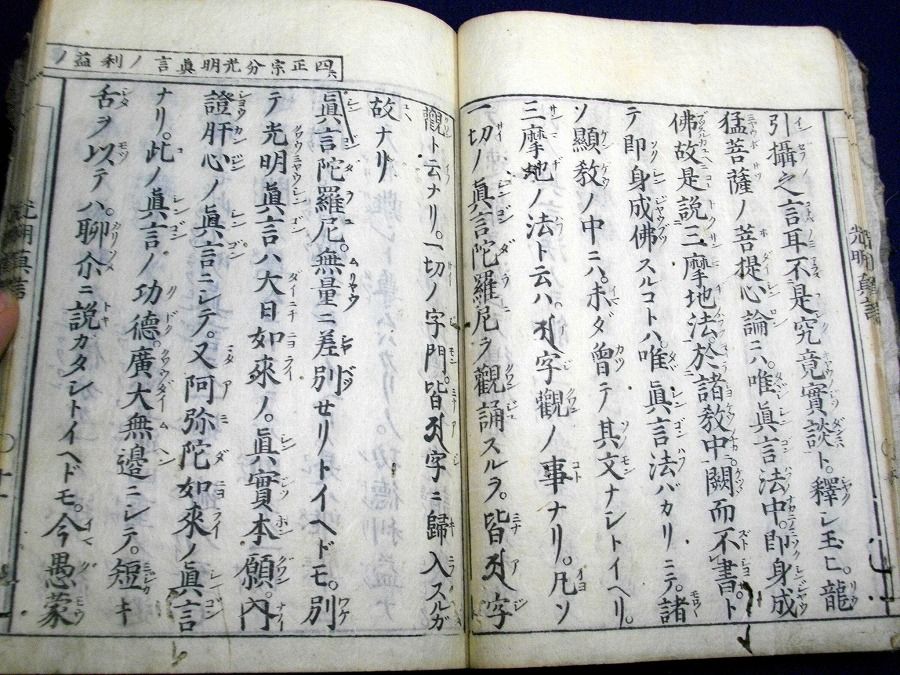 引攝之言耳不是究竟實談ト。釋シ玉ヒ。龍
猛菩薩ノ菩提心論ニハ。唯眞言法中。即身成
佛故是説三摩地法。於諸教中。闕而不書。ト
テ即身成佛スルコトハ。唯眞言法バカリニテ。諸
ソ顯教ノ中ニハ。未ダ曾テ其文ナシトイヘリ。
三摩地ノ法ト云ハ。𑖀字觀ノ事ナリ。凡ソ
一切ノ眞言陀羅尼ヲ觀誦スルヲ。皆𑖀字
觀ト云ナリ。一切ノ字門。皆𑖀字ニ歸入スルガ
故ナリ
四 正宗分光明眞言ノ利益ノ
眞言陀羅尼。無量ニ差別セリトイヘドモ。別
テ光明眞言ハ大日如來ノ。眞實本願。内
證肝心ノ眞言ニシテ。又阿弥陀如來ノ眞言
ナリ。此ノ眞言ノ功德廣大無邊ニシテ。短キ
舌ヲ以テハ。聊尒ニ説ガタシトイヘドモ。今愚蒙
光明眞言